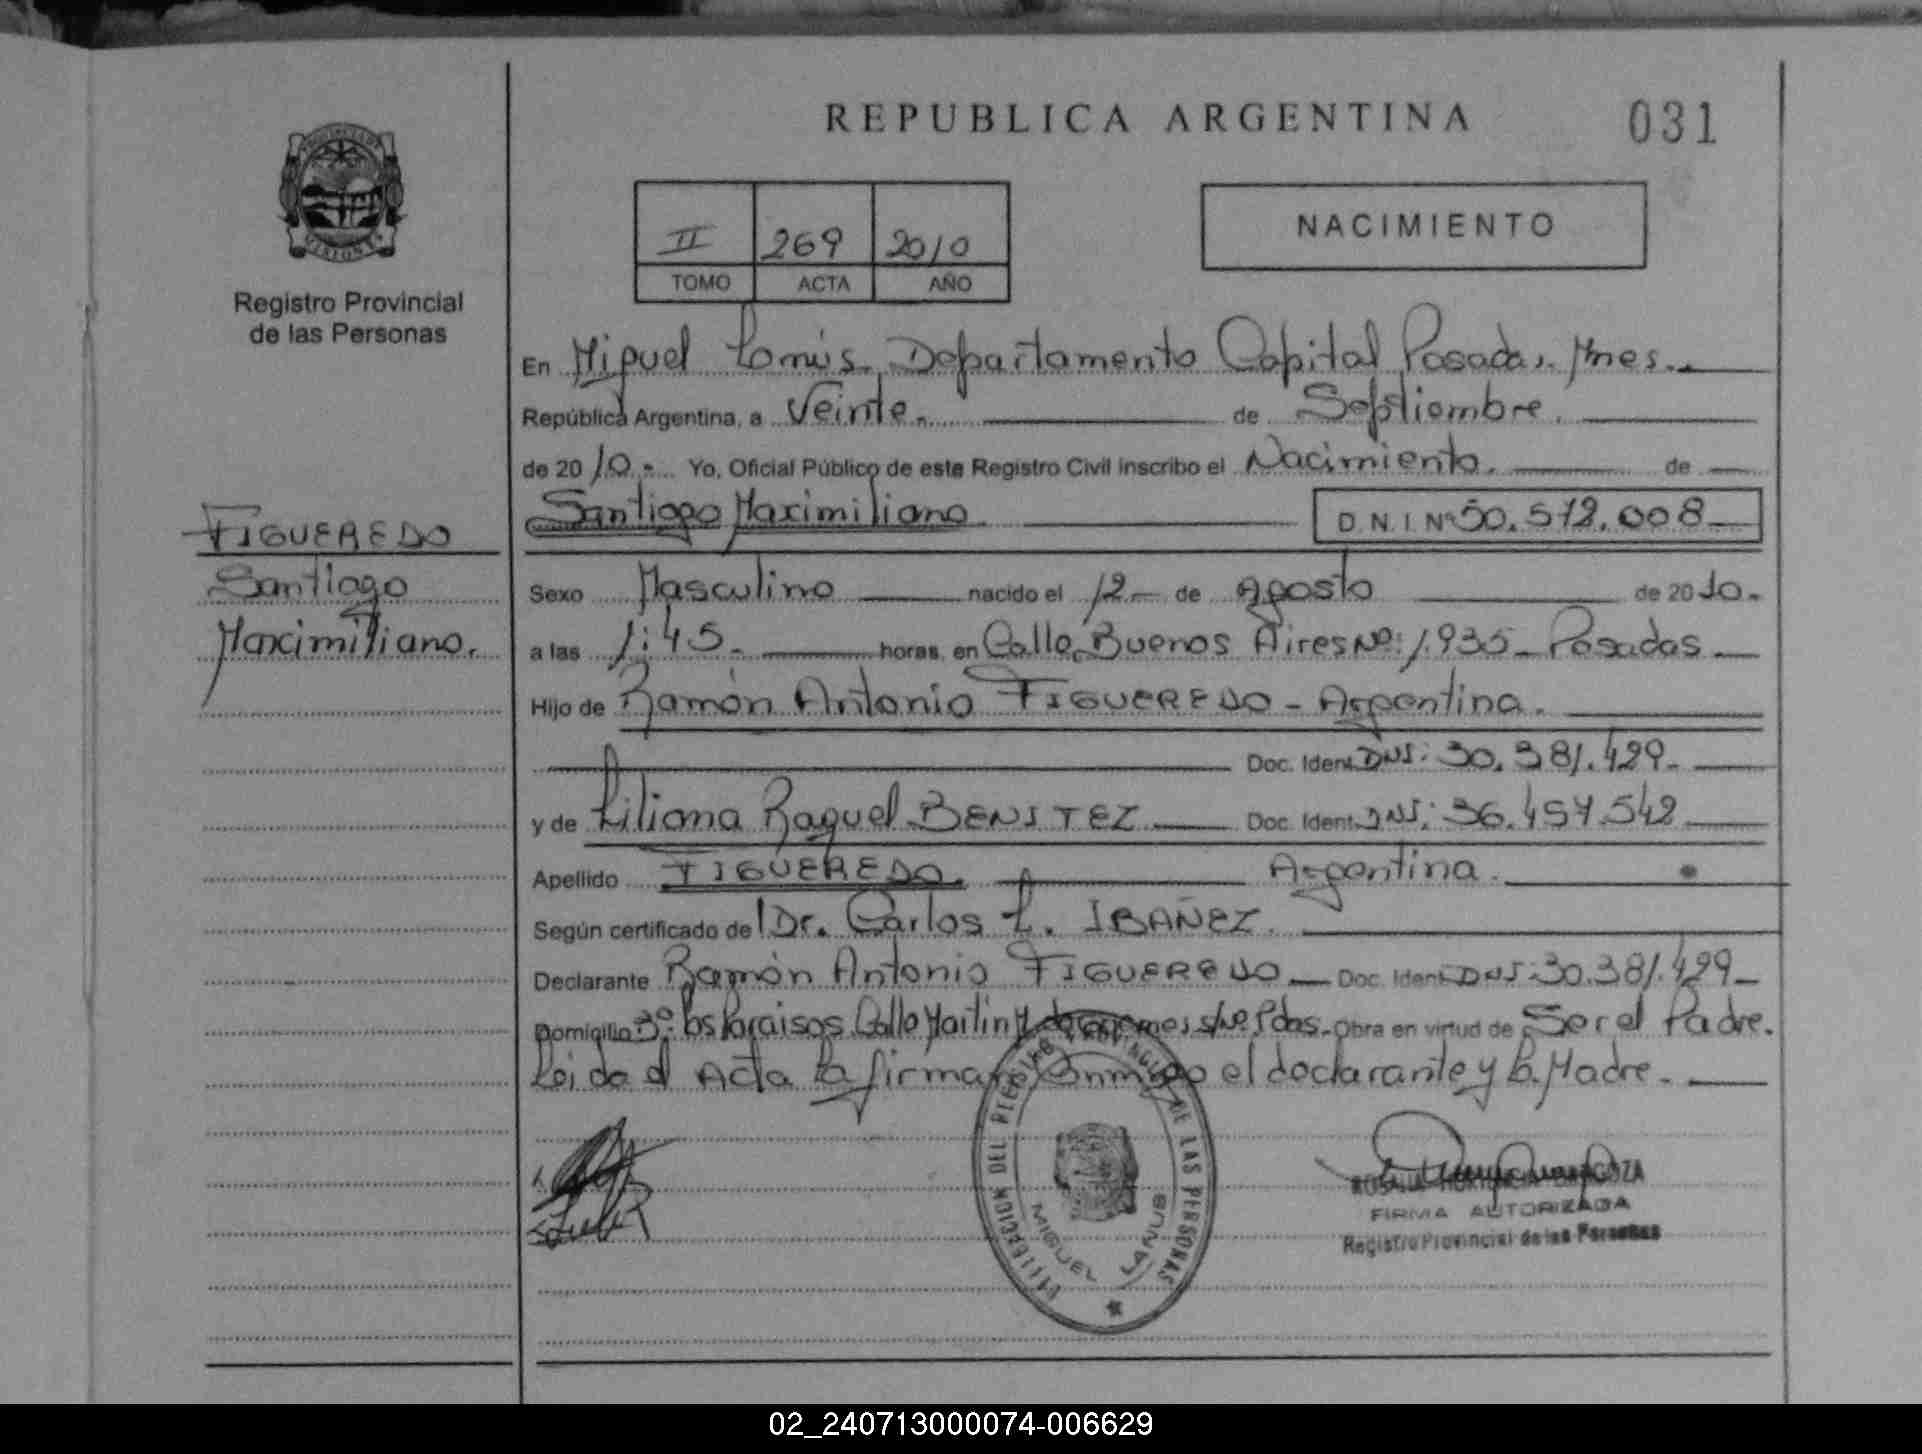 REPUBLICA ARGENTINA
031
Registro Provincial
de las Personas
II 269 2010
TOMO ACTA AÑO
NACIMIENTO
En Miguel Lanús. Departamento Capital Posadas. Mnes.
República Argentina, a Veinte. de Septiembre.
de 2010.- Yo, Oficial Público de este Registro Civil inscribo el Nacimiento. de
Santiago Maximiliano D.N.I. Nº 50.572.008
FIGUEREDO
Santiago
Maximiliano.
Sexo Masculino nacido el 12 - de Agosto de 2010.
a las 1:45. horas, en Calle Buenos Aires Nº: 1.935 - Posadas
Hijo de Ramón Antonio FIGUEREDO - Argentina.
Doc. Ident. DNI: 30.381.429-
y de Liliana Raquel BENITEZ Doc. Ident. DNI: 36.457.542
Apellido FIGUEREDO. Argentina.
Según certificado de Dr. Carlos L. IBAÑEZ.
Declarante Ramón Antonio FIGUEREDO Doc. Ident. DNI: 30.381.429-
Domicilio Bº: los Paraisos Calle Martin s/Nº Pdas. Obra en virtud de Ser el Padre.
Leida el Acta la firman Conmigo el declarante y la Madre.
DELEGACION DEL REGISTRO PROVINCIAL DE LAS PERSONAS
MIGUEL LANUS
FIRMA AUTORIZADA
Registro Provincial de las Personas
02_240713000074-006629